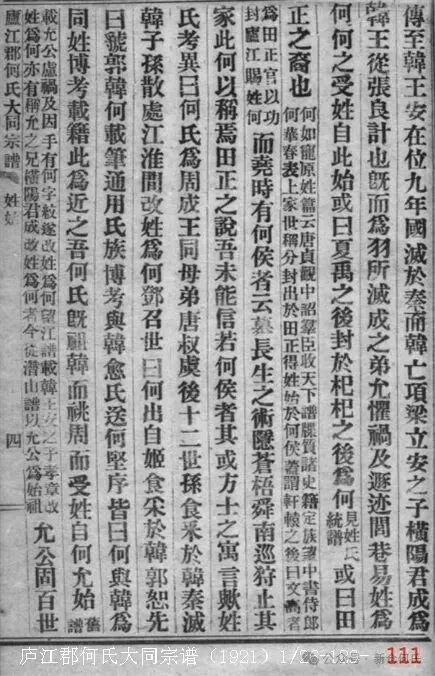 傳至韓王安在位九年國滅於秦而韓亡項梁立安之子橫陽君成爲
韓王從張良計也旣而爲羽所滅成之弟允懼禍及遯迹閭巷易姓爲
何何之受姓自此始或曰夏禹之後封於杞杞之後爲何見姓氏統譜或曰田
正之裔也何如寵原姓篇云唐貞觀中詔羣臣收天下譜牒質諸史籍定族望中書侍郎何華春表上家世稱分封出於田正得姓始於何侯蕭謂軒轅之後曰文者
爲田正官以功封廬江賜姓何而堯時有何侯者云慕長生之術隱蒼梧舜南巡狩止其
家此何以稱焉田正之說吾未能信若何侯者其或方士之寓言歟姓
氏考異曰何氏爲周成王同母弟唐叔虞後十二世孫食釆於韓秦滅
韓子孫散處江淮間改姓爲何鄧召世曰何出自姬食釆於韓郭恕先
曰虢郭韓何載筆通用氏族博考與韓愈氏送何堅序皆曰何與韓爲
同姓博考載籍此爲近之吾何氏旣祖韓而祧周而受姓自何允始舊譜
載允公慮禍及因手有何字紋遂改姓爲何望江譜載韓王安之子孝章改姓爲何亦有稱允之兄橫陽君成改姓爲何者今從潛山譜以允公爲始祖允公固百世
廬江郡何氏大同宗譜 姓始 四
庐江郡何氏大同宗谱（1921）1/26-195-
公众号·新华何氏
111